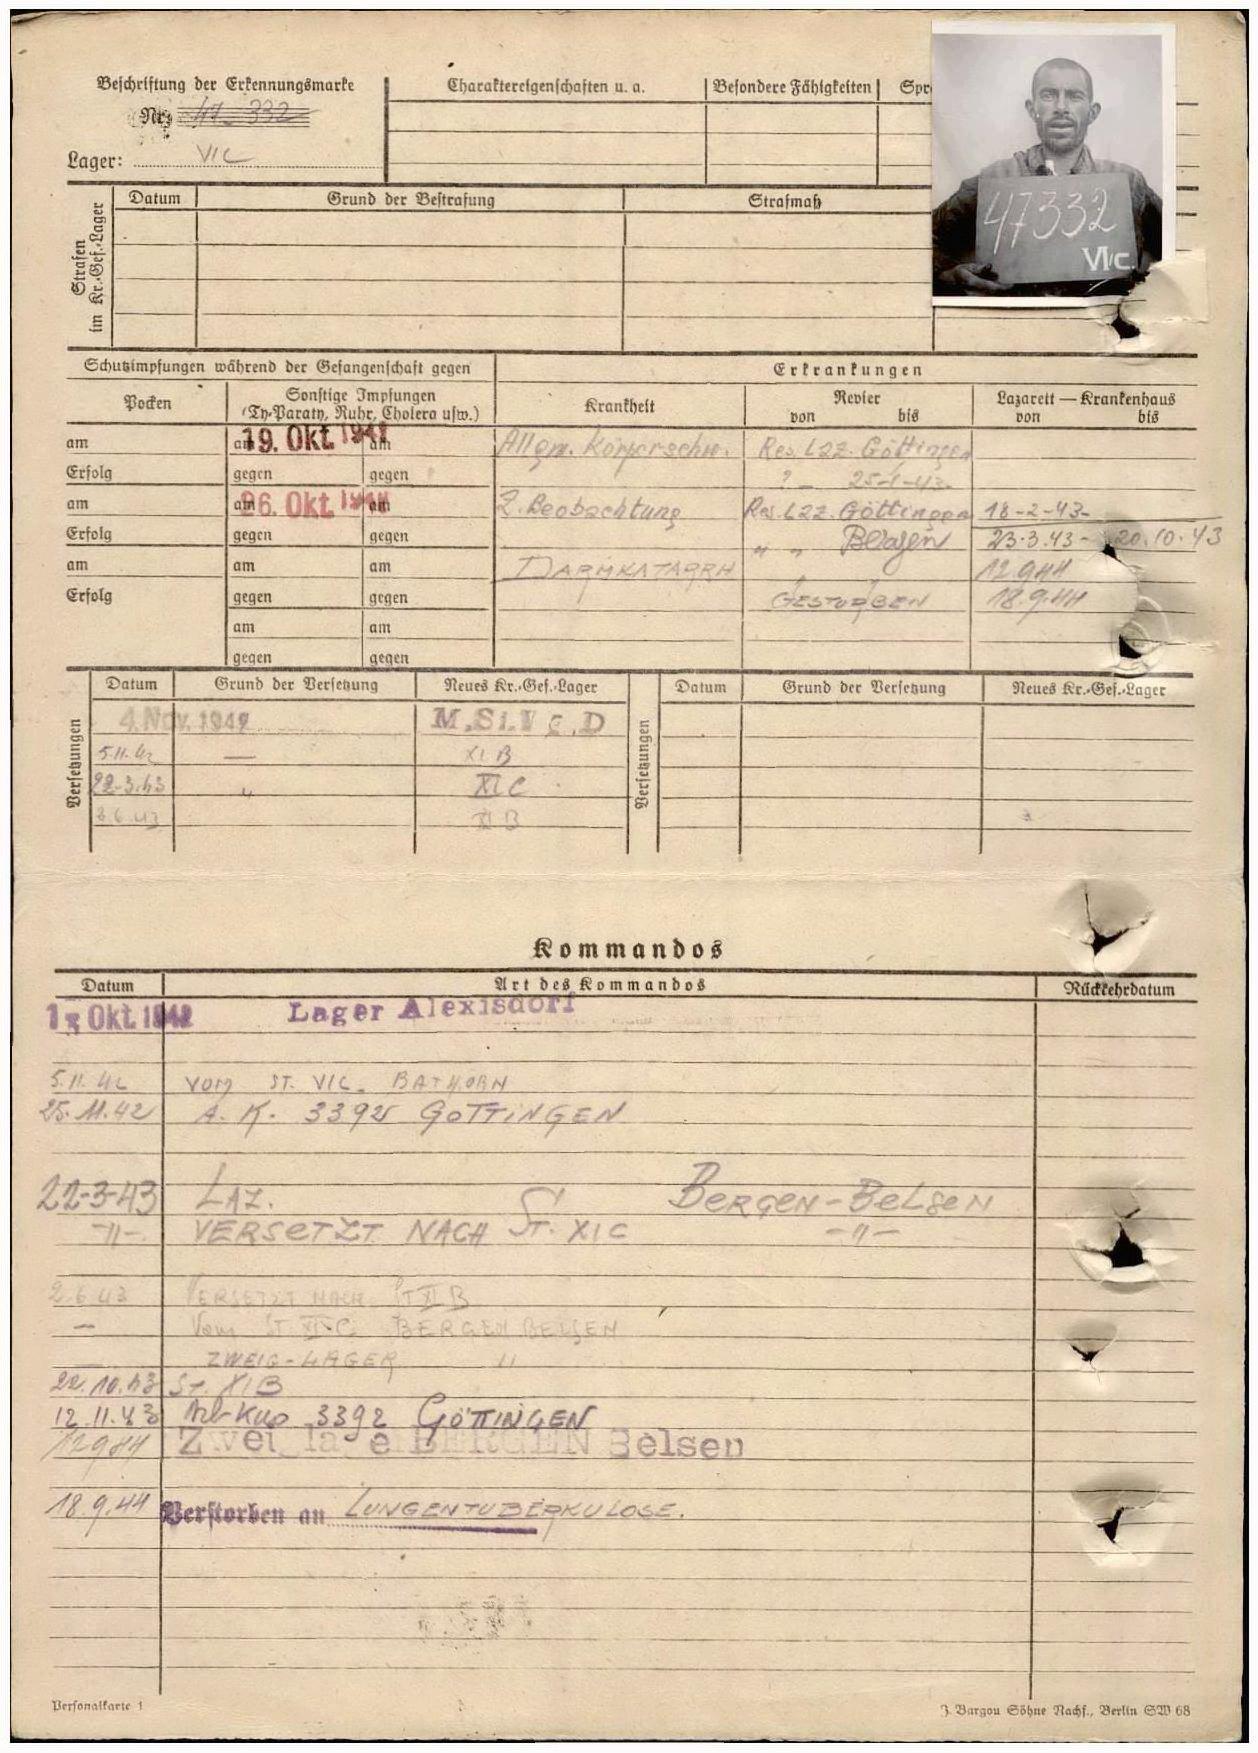 Beschriftung der Erkennungsmarke
Nr. 47 332
Lager: VIC
Charaktereigenschaften u. a.
Besondere Fähigkeiten
Spr
47332
VIc.
Strafen im Kr.-Gef.-Lager
Datum Grund der Bestrafung Strafmaß
Schutzimpfungen während der Gefangenschaft gegen
Erkrankungen
Pocken
Sonstige Impfungen
(Ty-Paraty, Ruhr, Cholera usw.)
Krankheit
Revier
von bis
Lazarett — Krankenhaus
von bis
am am 19. Okt. am Allgm. Körperschw. Res. Laz. Göttingen
Erfolg gegen gegen ? – 25-1-43.
am am 26. Okt am Z. Beobachtung Res. Laz. Göttingen 18-2-43-
Erfolg gegen gegen " " Bergen 23.3.43 - 20.10.43
am am am DARMKATARRH 12.9.44
Erfolg gegen gegen GESTORBEN 18.9.44
am am
gegen gegen
Versetzungen
Datum Grund der Versetzung Neues Kr.-Gef.-Lager
Versetzungen
Datum Grund der Versetzung Neues Kr.-Gef.-Lager
4. Nov. 1942
5.11.42 — XI B
22-3.43 " XI C
2.6.43 XI B
Kommandos
Datum Art des Kommandos Rückkehrdatum
Okt. 1942 Lager Alexisdorf
5.11.42 VOM ST. VIC. BATHORN
25.11.42 A. K. 3392 GÖTTINGEN
22-3-43 LAZ. BERGEN-BELSEN
-"- VERSETZT NACH ST. XIC -"-
2.6.43 VERSETZT NACH ST XI B
— Vom ST. XI-C BERGEN BELSEN
— ZWEIG-LAGER "
22.10.43 ST. XIB
12.11.43 Arb Kdo 3392 GÖTTINGEN
12.9.44 BERGEN Belsen
18.9.44 Verstorben an LUNGENTUBERKULOSE.
Personalkarte 1
J. Bargou Söhne Nachf., Berlin SW 68